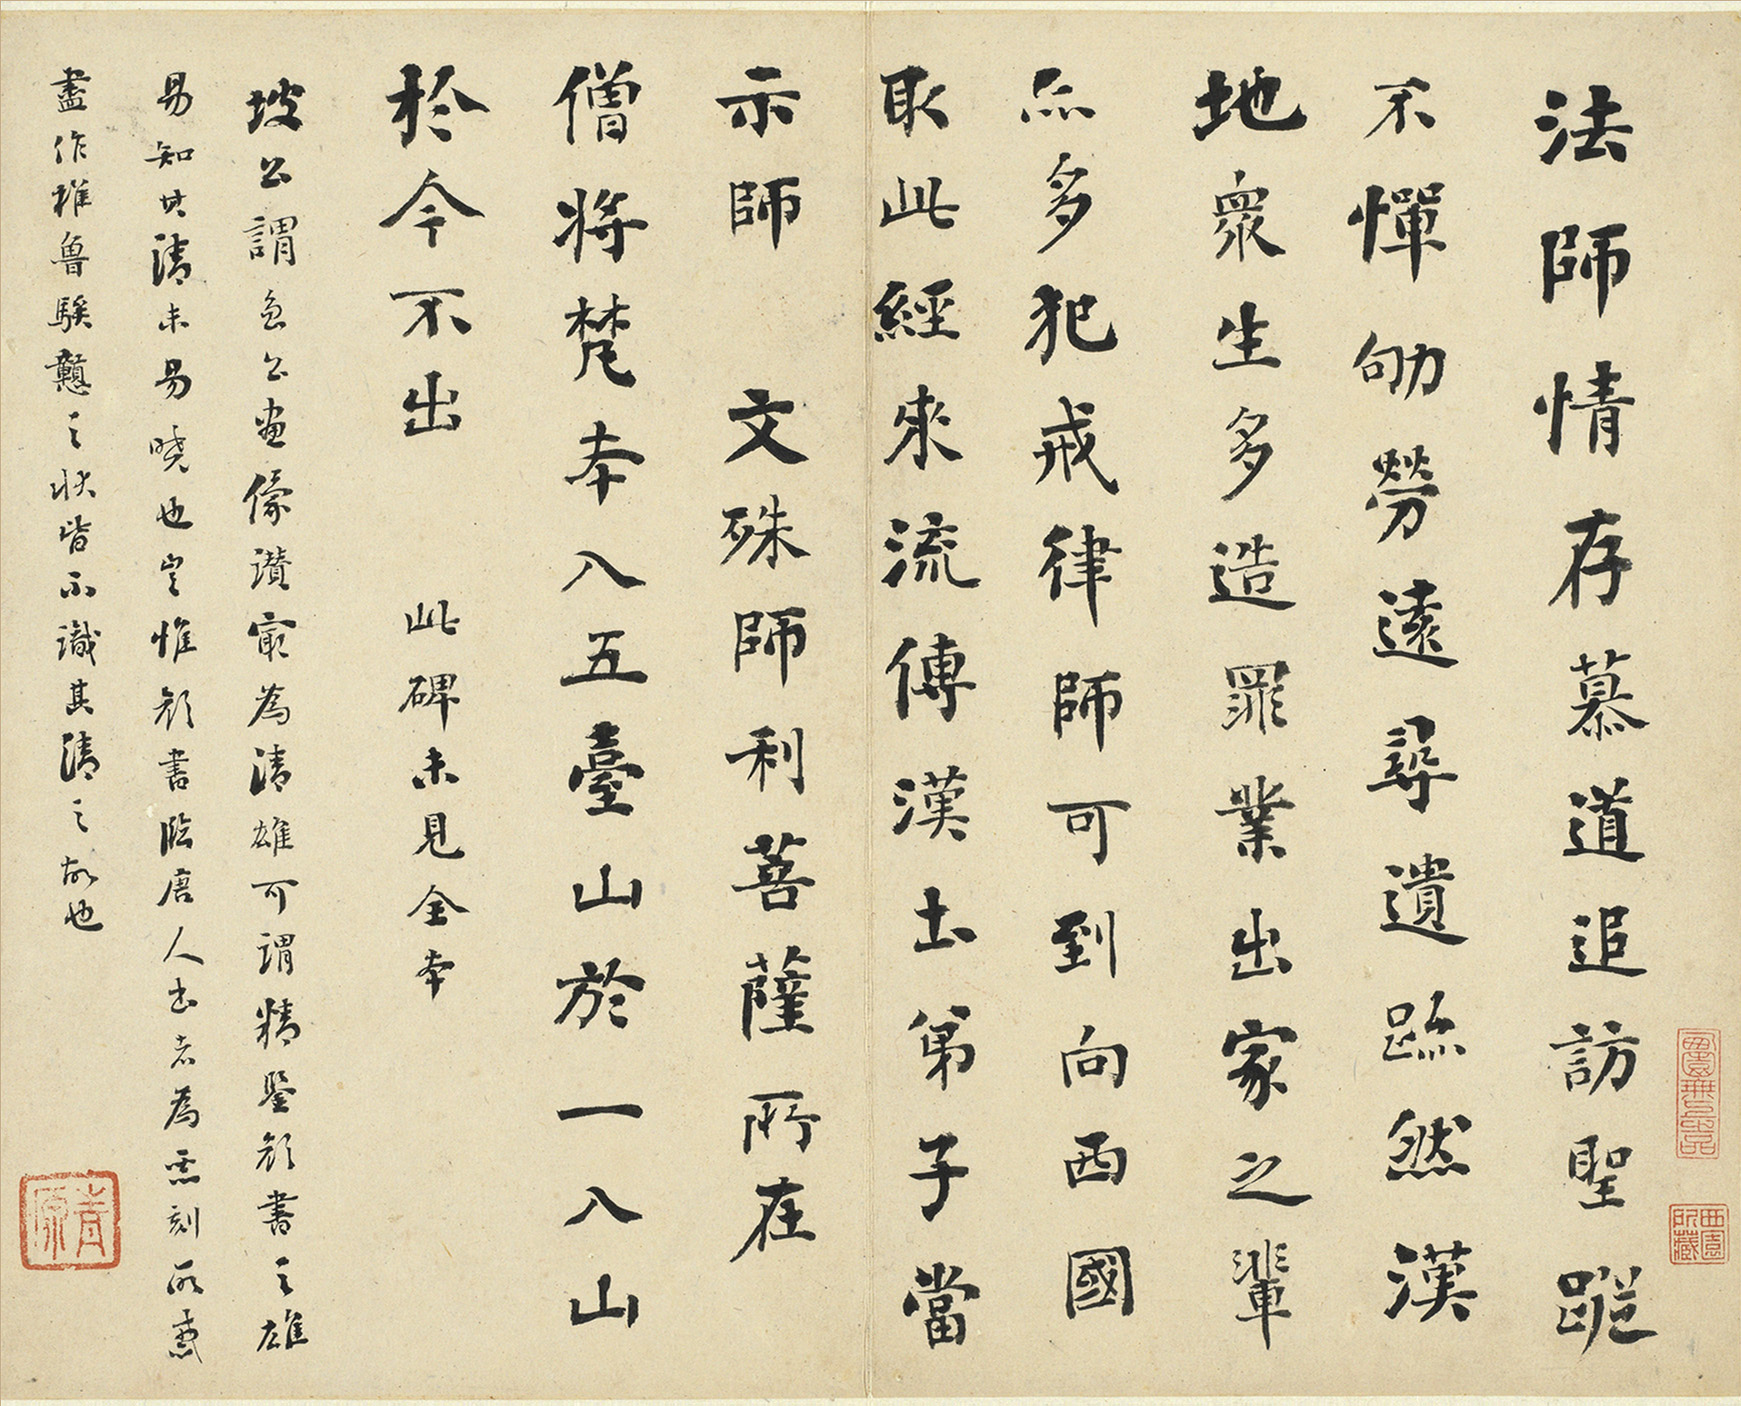 法師情存慕道追訪聖蹤
不憚劬勞遠尋遺跡然漢
地衆生多造罪業出家之輩
亦多犯戒律師可到向西國
取此經來流傳漢土弟子當
示師 文殊師利菩薩所在
僧將梵本入五臺山於一入山
於今不出 此碑未見全本
坡公謂魯公畫像讚最為清雄可謂精鑒顏書之雄
易知其清未易曉也豈惟顏書臨唐人書者為惡刻所惑
盡作推魯騃戇之狀皆不識其清之故也
青原
西園所藏